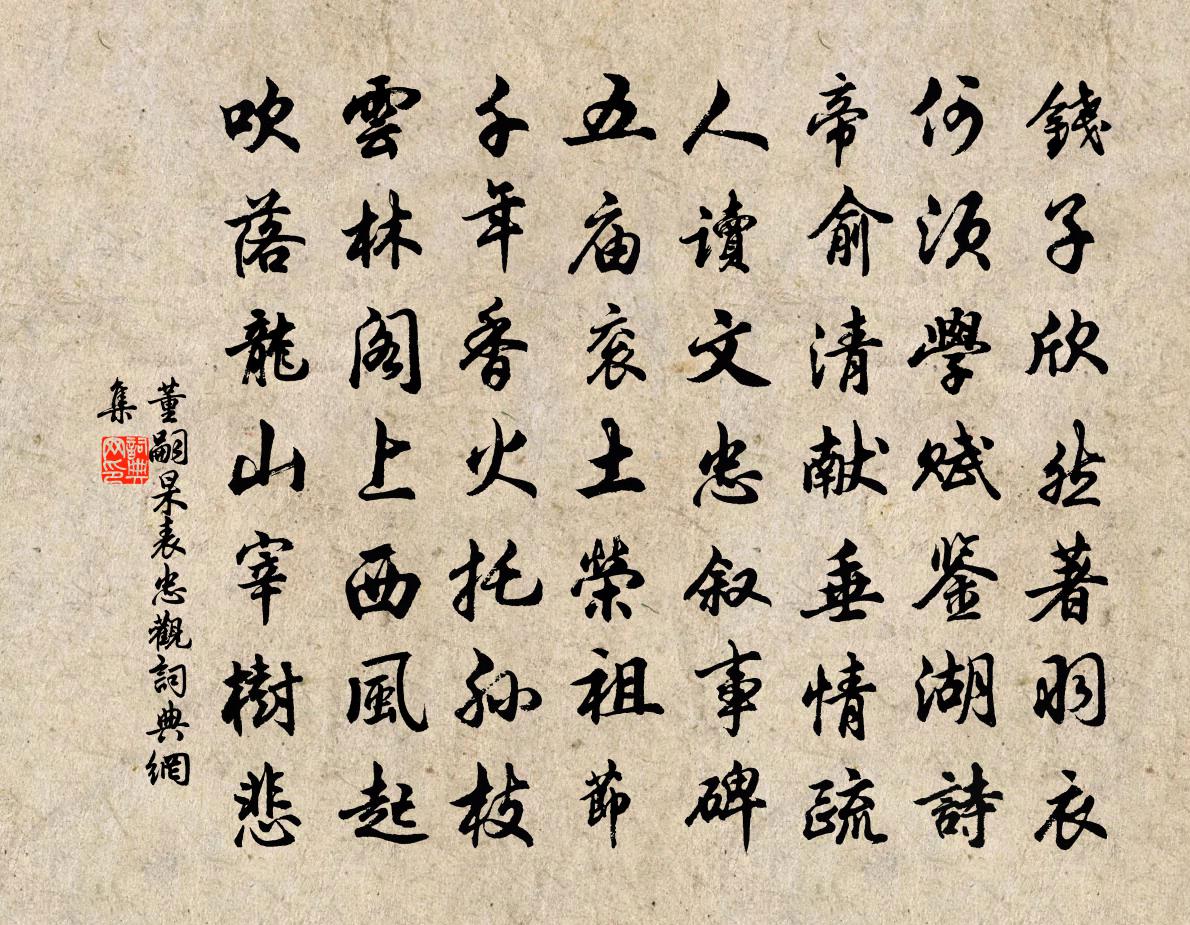 錢子欣然著羽衣
何須學賦鉴湖詩
帝俞清献垂情疏
人讀文忠叙事碑
五庙衮土榮祖節
千年香火托孫枝
雲林閣上西風起
吹落龍山宰樹悲
董嗣杲表忠觀詞典網
集
詞典网印